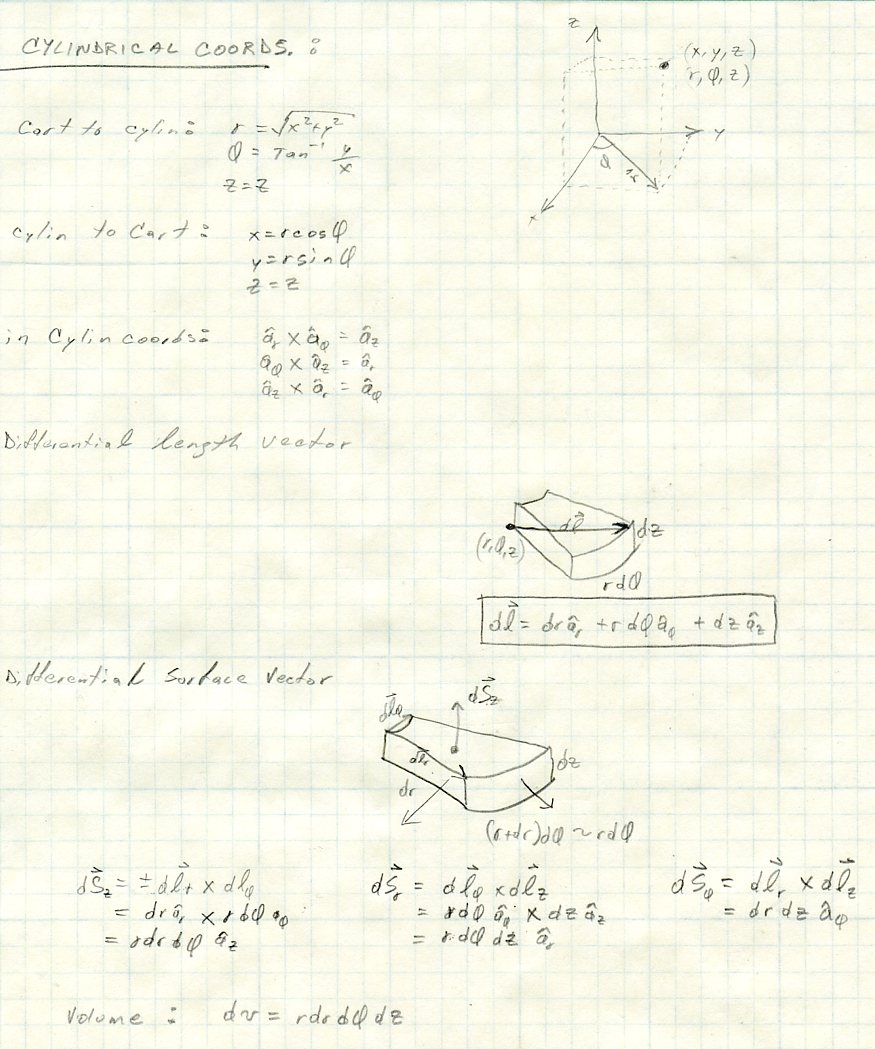 CYLINDRICAL COORDS. :
z
(x, y, z)
r, φ, z)
y
φ
r
x
Cart to cylin: r = √x²+y²
φ = Tan⁻¹ y/x
z = z
Cylin to Cart: x = r cos φ
y = r sin φ
z = z
in Cylin coords: âr × âφ = âz
aφ × âz = âr
âz × âr = âφ
Differential length vector
dl⃗
dz
(r, φ, z)
r dφ
dl⃗ = dr âr + r dφ âφ + dz âz
Differential Surface Vector
dl⃗φ
dS⃗z
dl⃗r
dz
dr
(r+dr)dφ ~ r dφ
dS⃗z = ± dl⃗r × dl⃗φ
= dr âr × r dφ aφ
= r dr dφ âz
dS⃗r = dl⃗φ × dl⃗z
= r dφ âφ × dz âz
= r dφ dz âr
dS⃗φ = dl⃗r × dl⃗z
= dr dz âφ
Volume : dv = r dr dφ dz